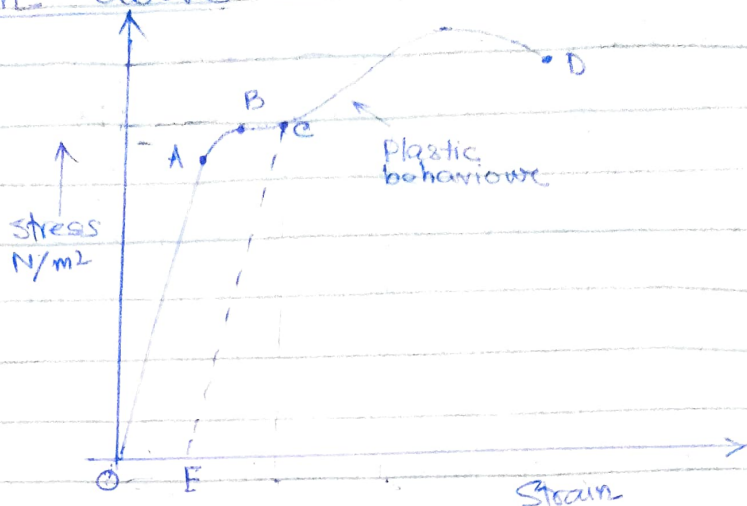 B
D
A
C
Plastic
behaviowr
stress
N/m²
O
E
Strain